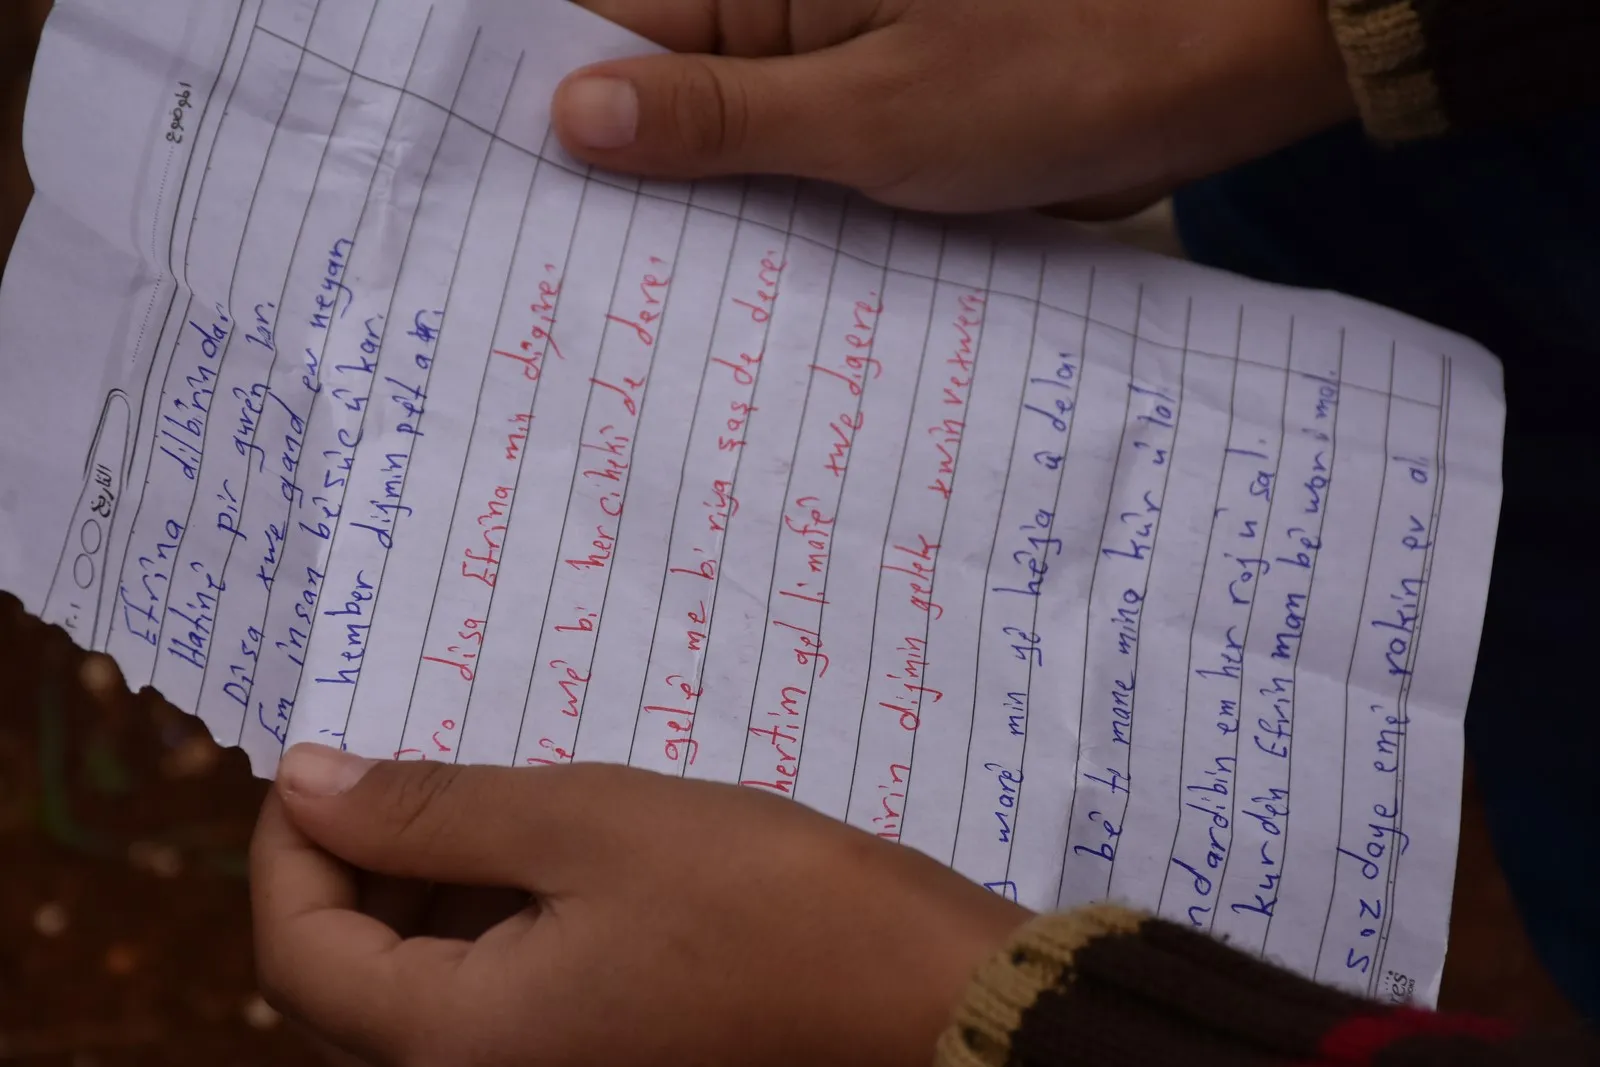 التاريخ
الموضوع
Efrîna dilbirîn dar,
Hatinê pir gurên har.
Disa xwe gand ev neyan
Em însan bê sûc û kar.
hember dijmin pêt ar.
ro disa Efrîna min digire,
wê bi her cihekî de dere,
gelê me bi riya şaş de dere,
hertim gel li mafê xwe digere,
dijmin gelek xwîn vexwere,
warê min yê hêja û delal
bê te mane mina kûr û lal.
ndardibin em her roj û sal.
kurdên Efrîn man bê war û mal.
soz daye emê rakin ev al.